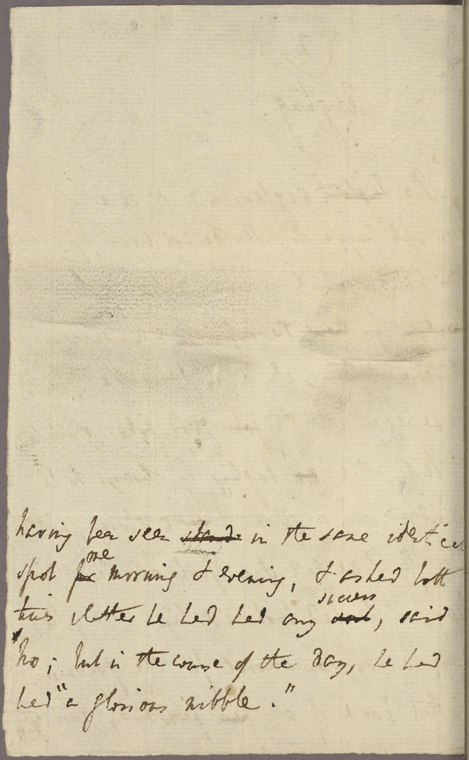 having been seen stand in the same identical
spot for one morning & evening, & asked both
times whether he had had any sport, success, said
"No; but in the course of the day, he had
had "a glorious nibble."